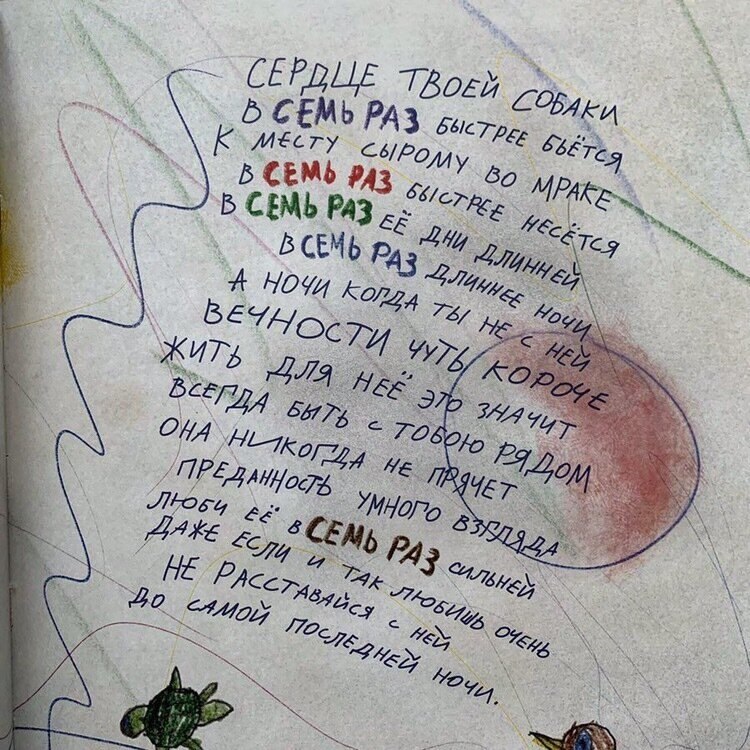 СЕРДЦЕ ТВОЕЙ СОБАКИ
В СЕМЬ РАЗ БЫСТРЕЕ БЬЁТСЯ
К МЕСТУ СЫРОМУ ВО МРАКЕ
В СЕМЬ РАЗ БЫСТРЕЕ НЕСЁТСЯ
В СЕМЬ РАЗ ЕЁ ДНИ ДЛИННЕЙ
В СЕМЬ РАЗ ДЛИННЕЕ НОЧИ
А НОЧИ КОГДА ТЫ НЕ С НЕЙ
ВЕЧНОСТИ ЧУТЬ КОРОЧЕ
ЖИТЬ ДЛЯ НЕЁ ЭТО ЗНАЧИТ
ВСЕГДА БЫТЬ С ТОБОЮ РЯДОМ
ОНА НИКОГДА НЕ ПРЯЧЕТ
ПРЕДАННОСТЬ УМНОГО ВЗГЛЯДА
ЛЮБИ ЕЁ В СЕМЬ РАЗ СИЛЬНЕЙ
ДАЖЕ ЕСЛИ И ТАК ЛЮБИШЬ ОЧЕНЬ
НЕ РАССТАВАЙСЯ С НЕЙ
ДО САМОЙ ПОСЛЕДНЕЙ НОЧИ.